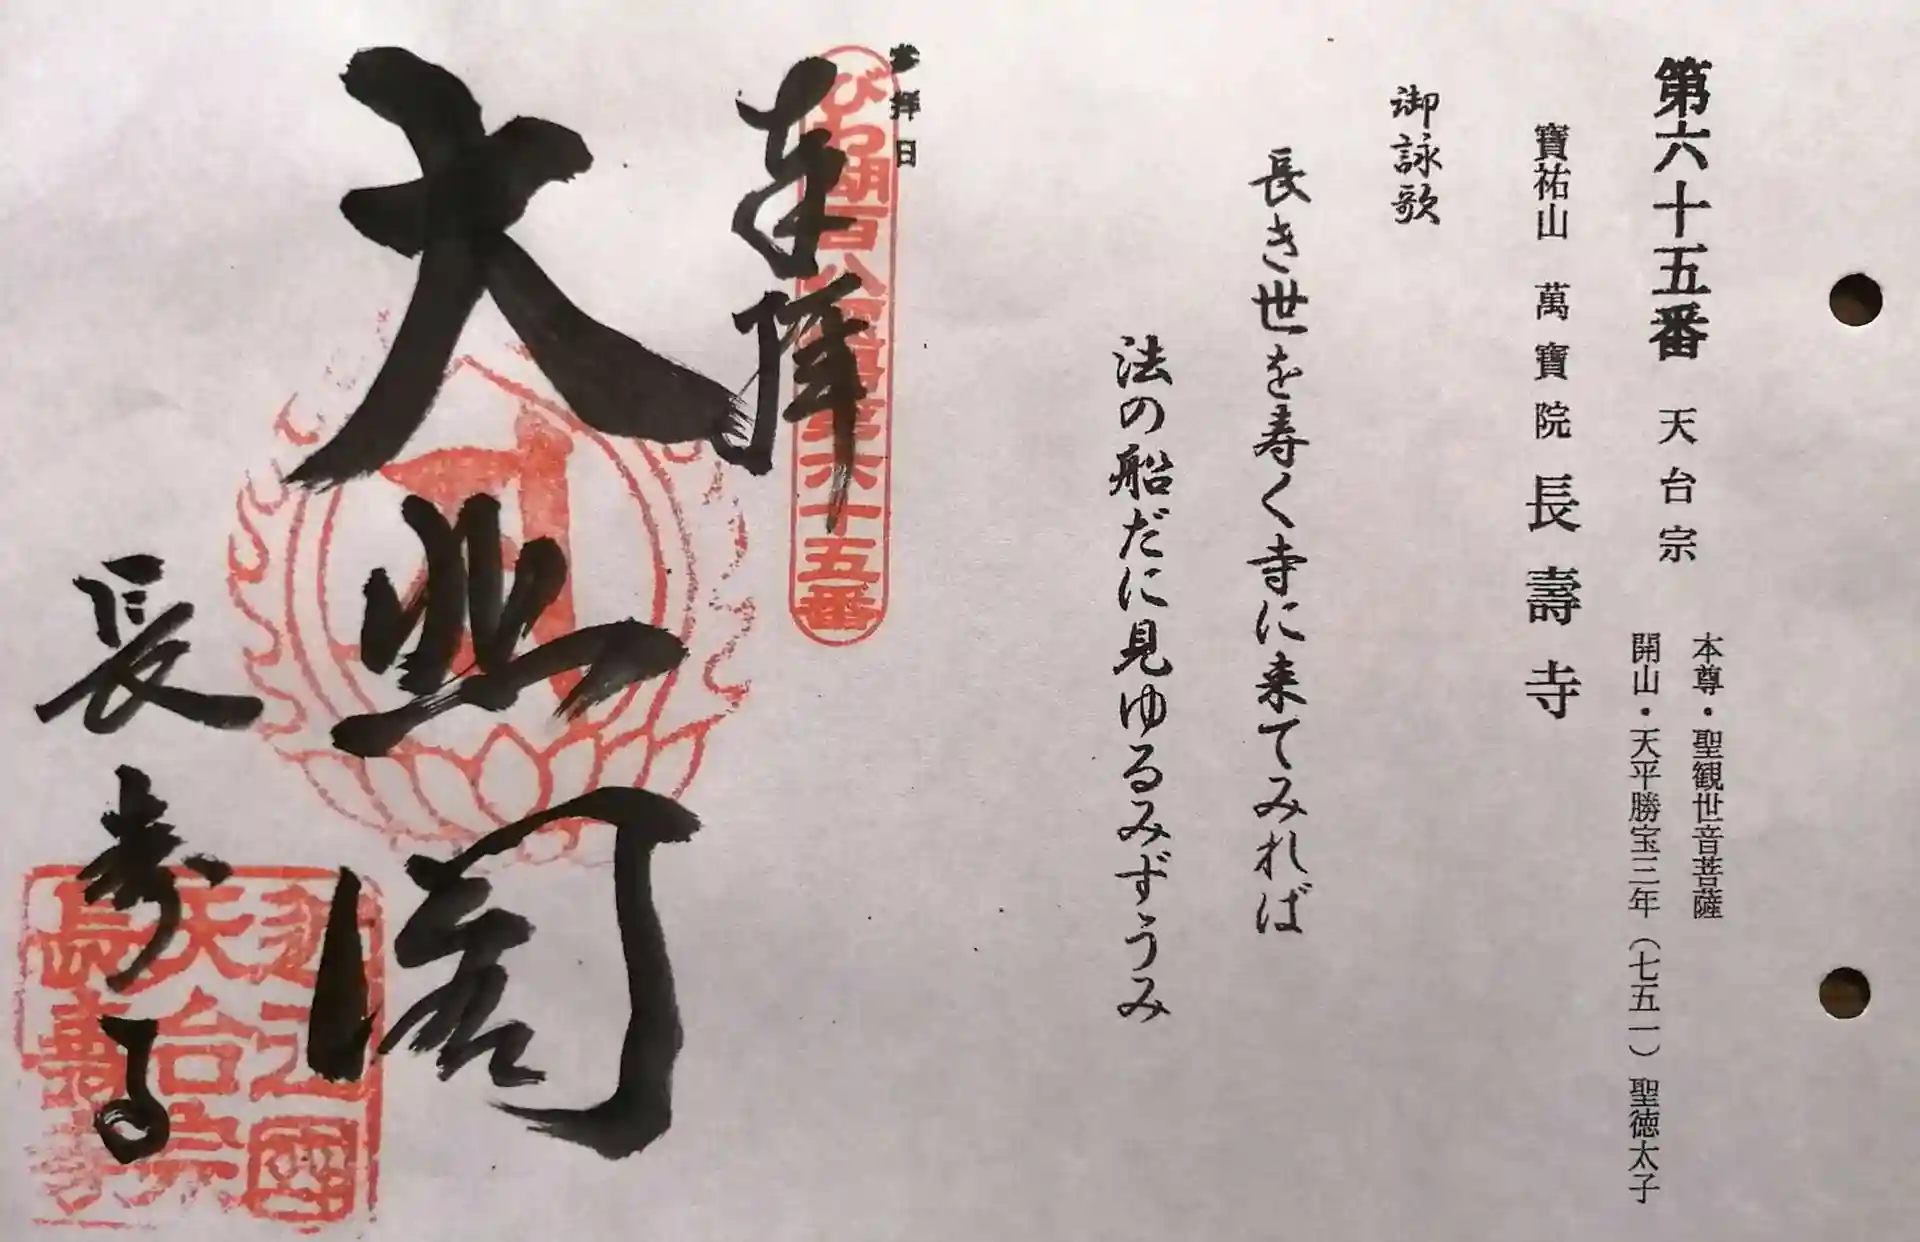 第六十五番 天台宗
本尊・聖観世音菩薩
開山・天平勝宝三年(七五一)聖徳太子
寶祐山 萬寶院 長壽寺
御詠歌
長き世を寿く寺に来てみれば
法の船だに見ゆるみずうみ
参拝日
びわ湖百八霊場第六十五番
奉拝
大悲閣
長寿寺
近江國
天台宗
長壽寺